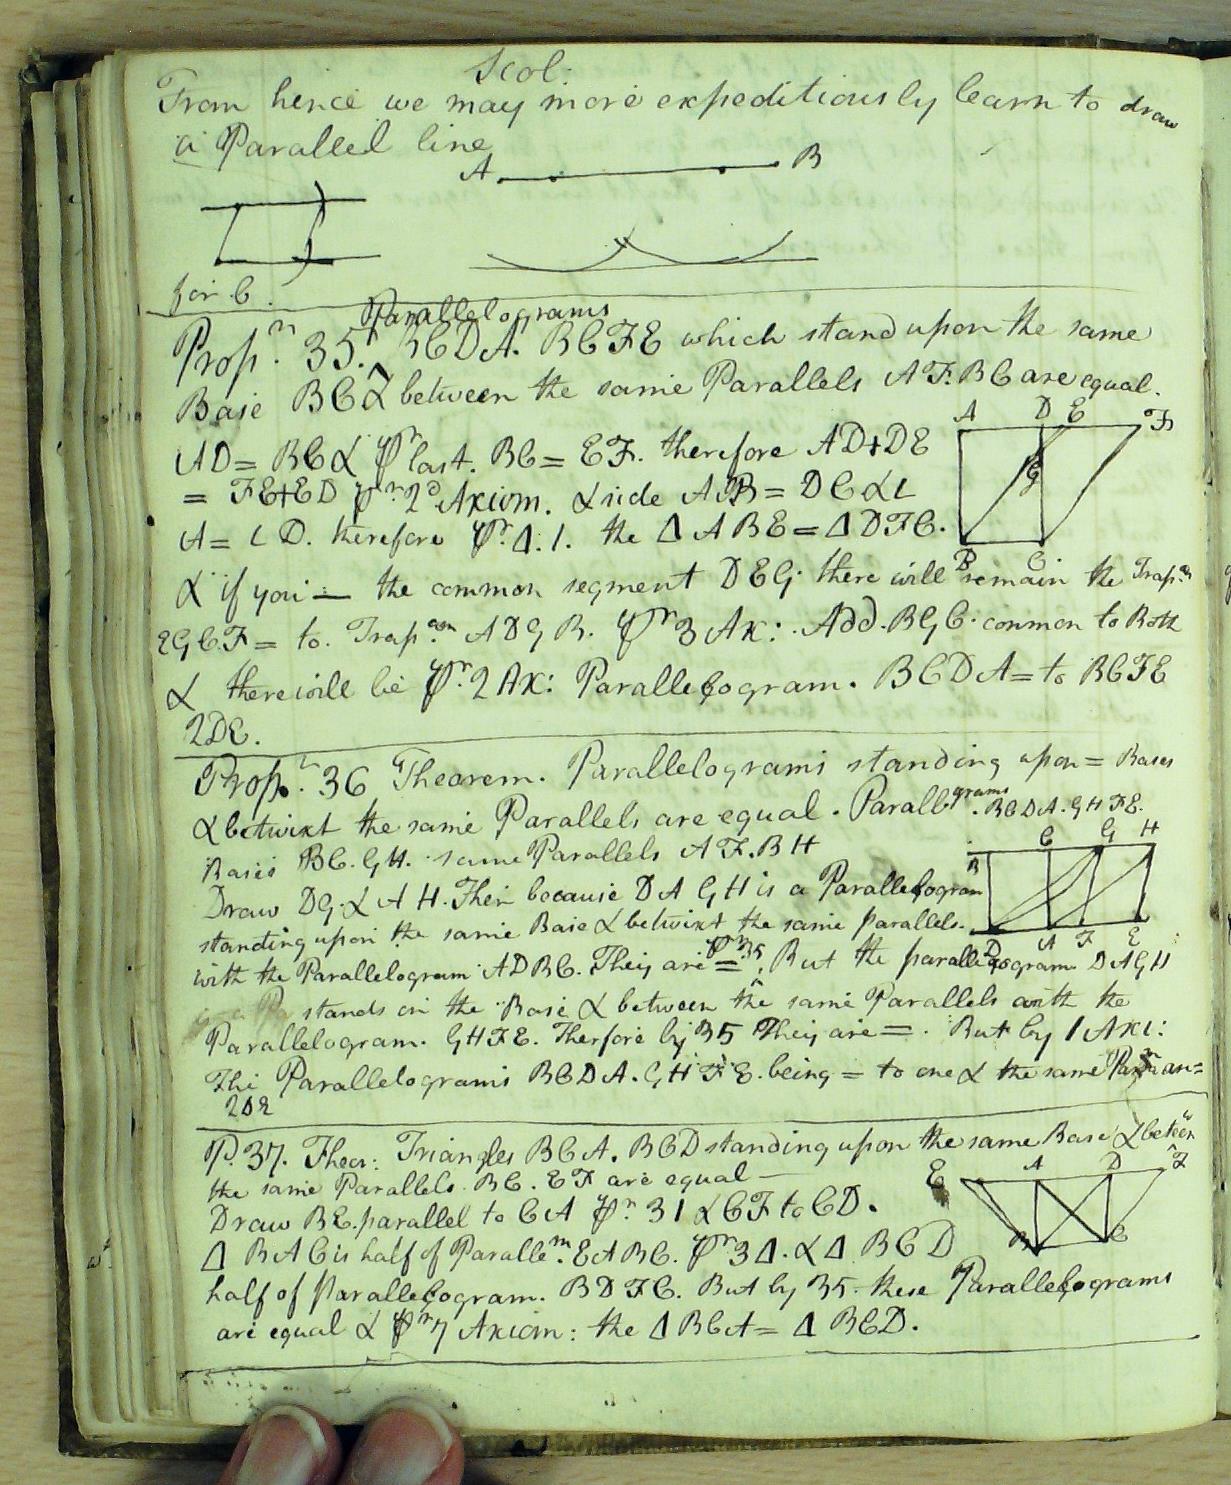 Scol:
From hence we may more expeditiously learn to draw
a Parallel line
A B
for C.
Parallelograms
Propn. 35. BCDA. BCFE which stand upon the same
Base BC & between the same Parallels AF. BC are equal.
A D E F
AD = BC & pr last. BC = EF. therefore AD+DE
= FE+ED pr 2d Axiom. & side AB = DC & L
G
A = L D. therefore pr. Δ. 1. the Δ ABE = Δ DFC.
B C
& if you — the common segment DEG. there will remain the Trapm
EGCF = to. Trapm ADGB. pr 3 Ax: Add. BGC. common to Both
& there will be pr. 2 AX: Parallelogram. BCDA = to BCFE
2DE.
Propn. 36 Theorem. Parallelograms standing upon = Bases
& betwixt the same Parallels are equal. Parallegrams. BCDA. GHFE.
Bases BC. GH. same Parallels AF. BH
B C G H
Draw DG. & AH. Then because DAGH is a Parallelogram
standing upon the same Base & betwixt the same parallels.
D A F E
with the Parallelogram ADBC. They are = pr 35. But the parallelogram DAGH
stands on the Base & between the same Parallels with the
Parallelogram. GHFE. Therfore by 35 They are =. But by 1 Axi:
The Parallelograms BCDA. GHFE. being = to one & the same are =
2DE
P. 37. Theor: Triangles BCA. BCD standing upon the same Base & between
the same Parallels. BC. EF are equal —
E A D F
Draw BE. parallel to CA pr. 31 & CF to CD.
Δ BAC is half of Parallem. EABC. pr 3Δ. & Δ BCD
B C
half of Parallelogram. BDFC. But by 35. these Parallelograms
are equal & pr 7 Axiom: the Δ BCA = Δ BCD.